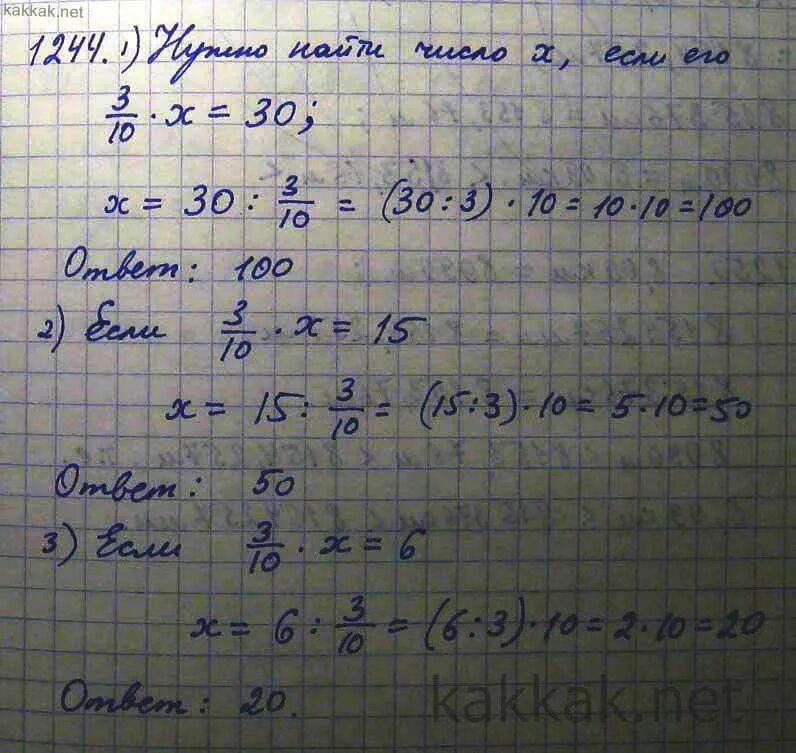 kakkak.net
1244. 1) Нужно найти число x, если его
3/10 · x = 30;
x = 30 : 3/10 = (30:3) · 10 = 10·10 = 100
Ответ: 100
2) Если 3/10 · x = 15
x = 15 : 3/10 = (15:3)·10 = 5·10 = 50
Ответ: 50
3) Если 3/10 · x = 6
x = 6 : 3/10 = (6:3)·10 = 2·10 = 20
Ответ: 20.
kakkak.net